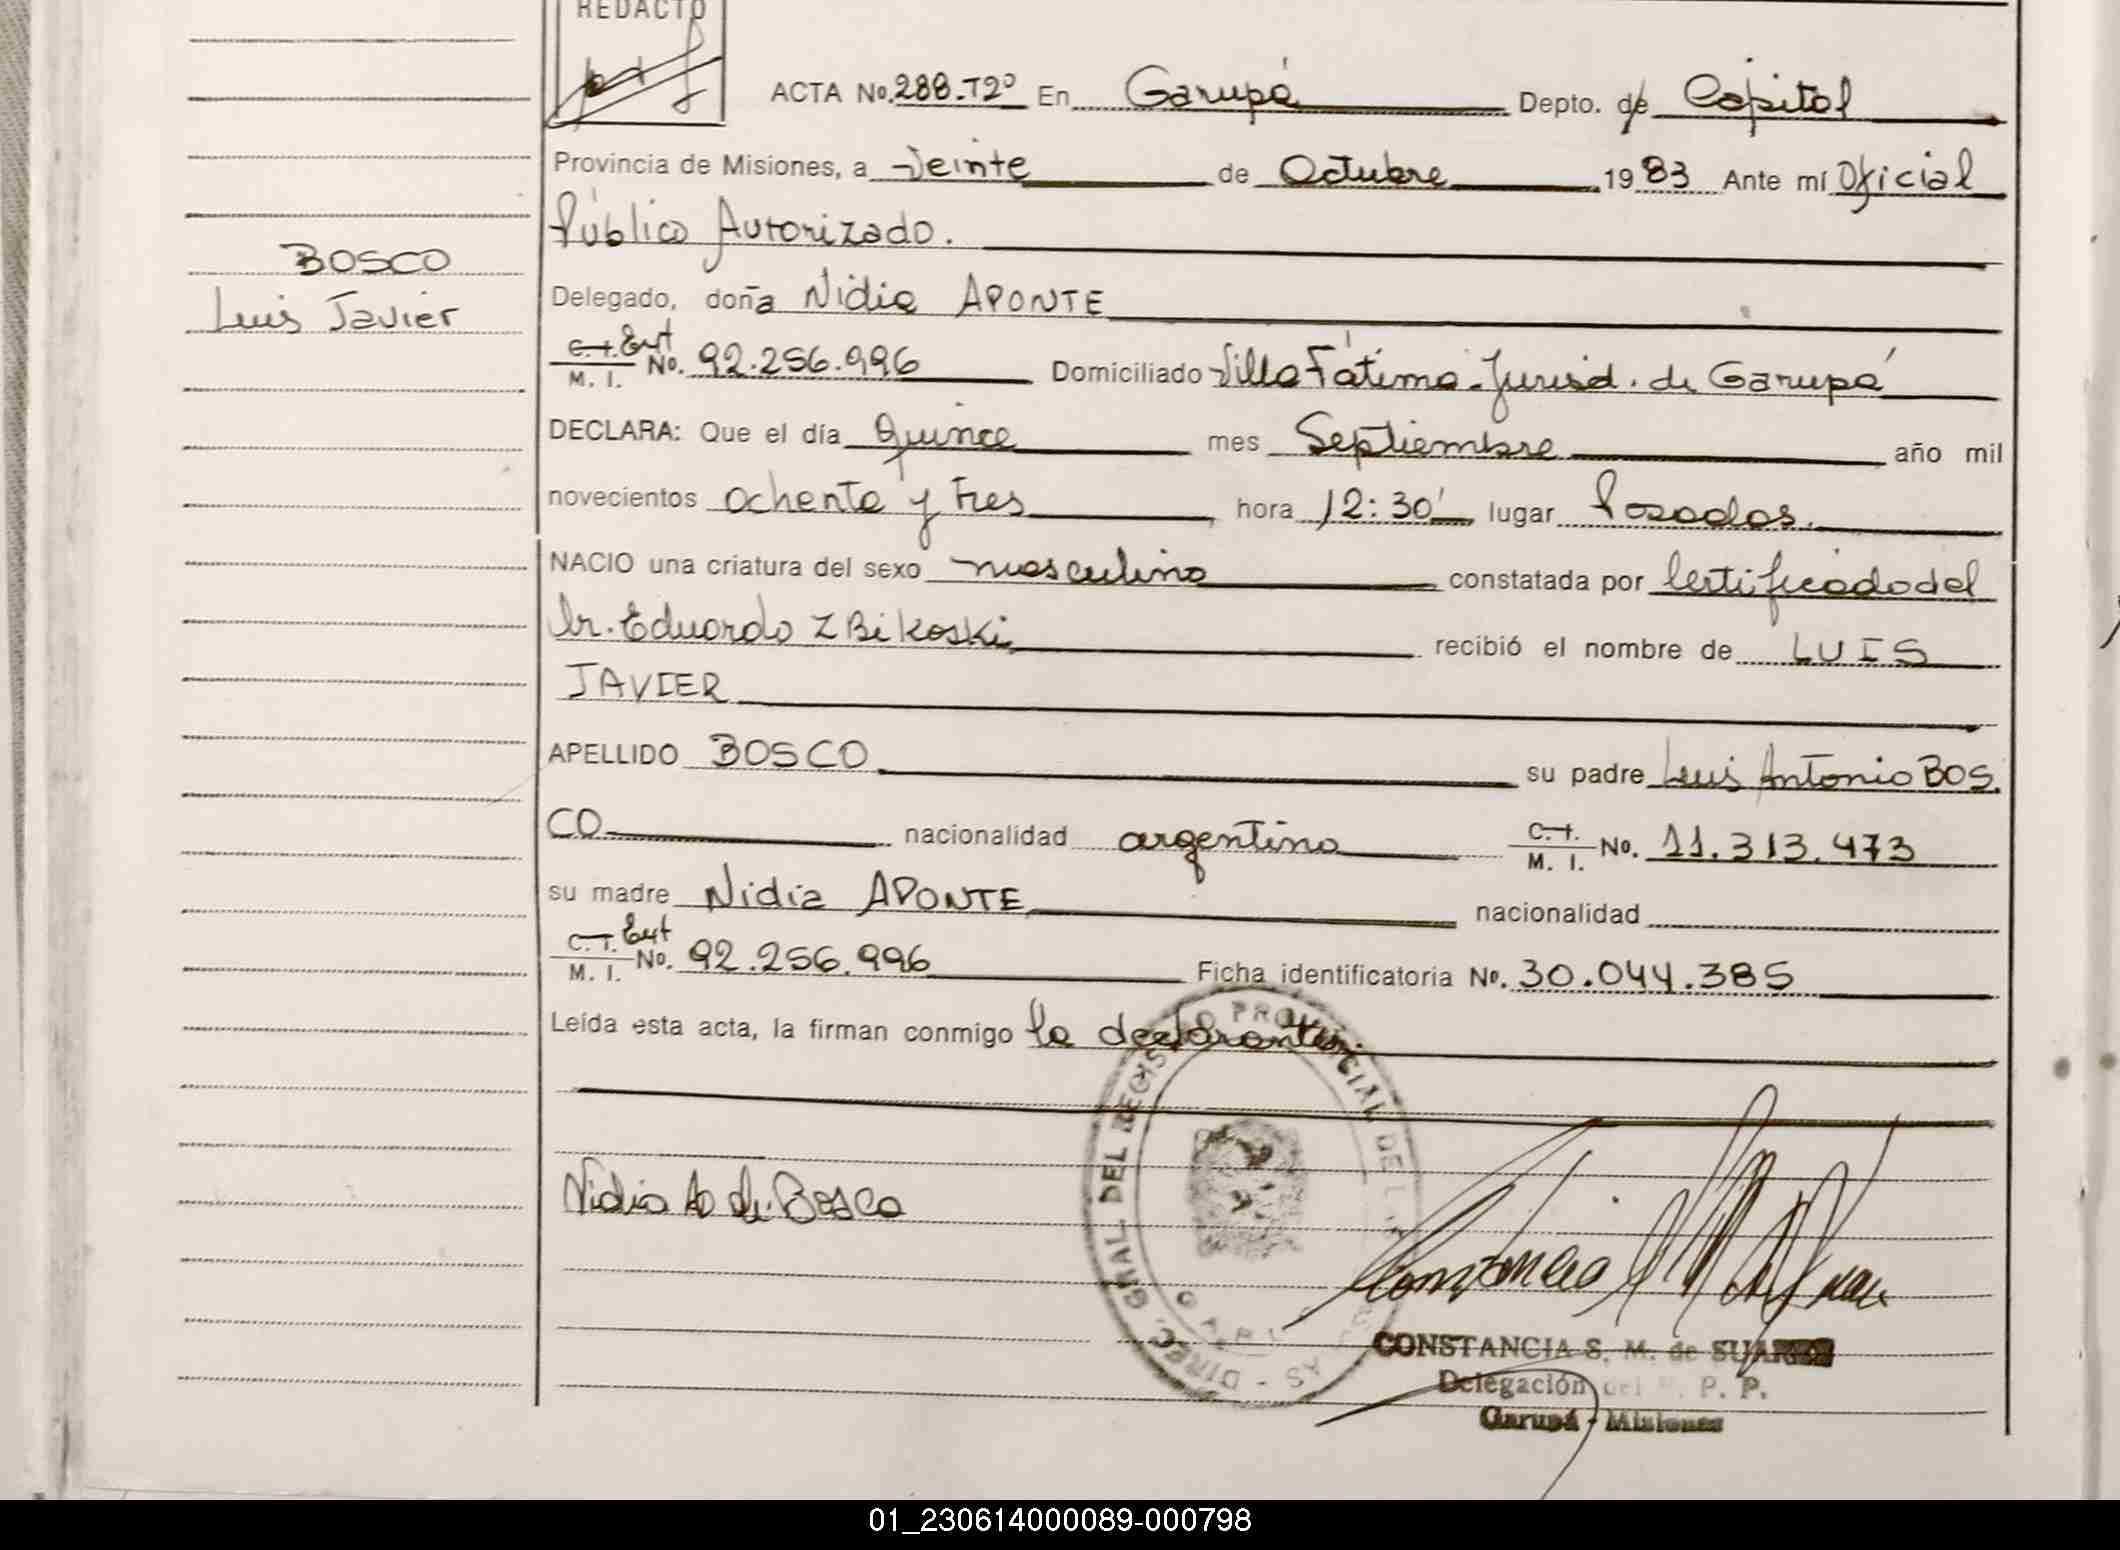 REDACTO
ACTA No. 288.T2º En Garupá Depto. de Capital
Provincia de Misiones, a Veinte de Octubre 1983 Ante mí Oficial
Público Autorizado.
BOSCO
Luis Javier
Delegado, doña Nidia APONTE
C.I. Ext No. 92.256.996 Domiciliado Villa Fátima-Jurisd. de Garupá
M. I.
DECLARA: Que el día Quince mes Septiembre año mil
novecientos ochenta y tres, hora 12:30' lugar Posadas.
NACIO una criatura del sexo masculino constatada por Certificado del
Dr. Eduardo ZBikoski recibió el nombre de LUIS
JAVIER
APELLIDO BOSCO su padre Luis Antonio BOS.
CO nacionalidad argentino C.I. No. 11.313.473
M. I.
su madre Nidia APONTE nacionalidad
C.I. Ext No. 92.256.996 Ficha identificatoria No. 30.044.385
M. I.
Leída esta acta, la firman conmigo la declarante
DIREC. GRAL DEL REGIS PROVINCIAL DE L
Nidia A de Bosco
CONSTANCIA S. M. de SUAREZ
Delegación del R. P. P.
Garupá - Misiones
01_230614000089-000798